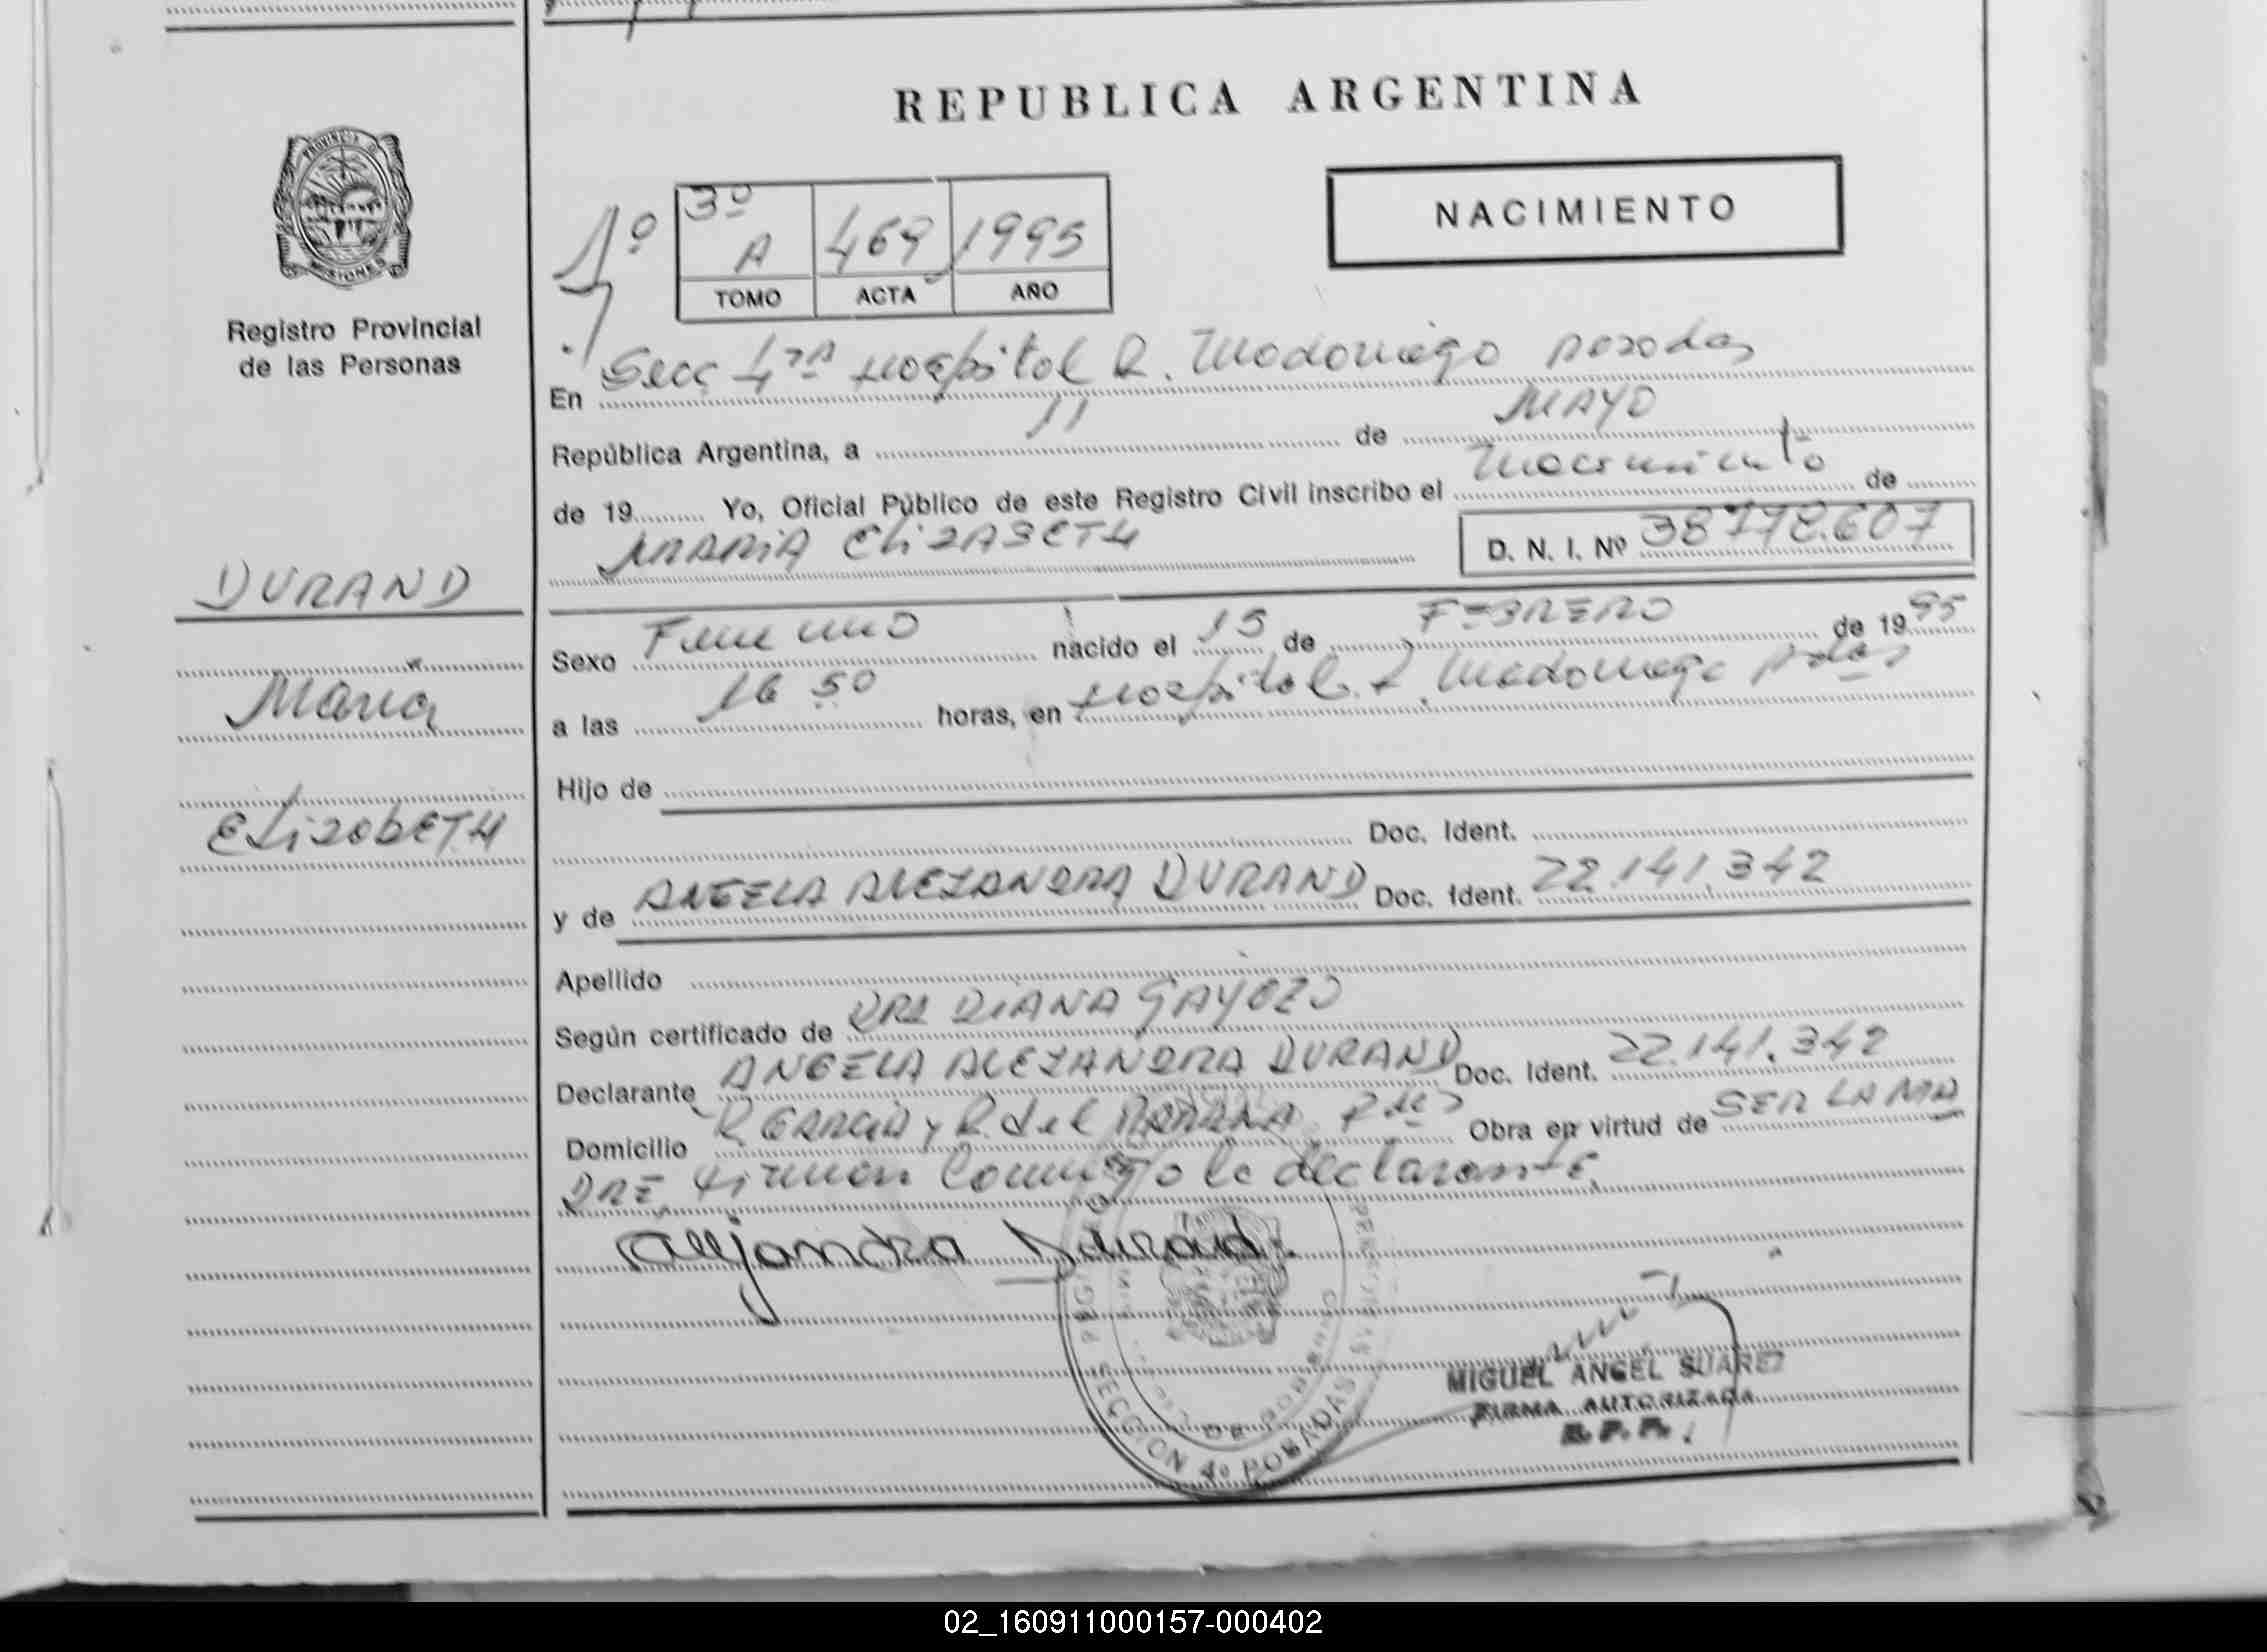 REPUBLICA ARGENTINA
PROVINCIA D
MISIONES
Registro Provincial
de las Personas
1º
3º
A 469 1995
TOMO ACTA AÑO
NACIMIENTO
En Secc 4ta Hospital R. Madariaga Posadas
República Argentina, a 11 de MAYO
de 19 Yo, Oficial Público de este Registro Civil inscribo el Nacimiento de
MARIA ELIZABETH
D. N. I. Nº 38.778.607
DURAND
Maria
ELizabETH
Sexo Femenino nacido el 15 de FEBRERO de 1995
a las 16 50 horas, en Hospital R. Madariaga Pdas
Hijo de
Doc. Ident.
y de ANGELA ALEJANDRA DURAND Doc. Ident. 22.141.342
Apellido
Según certificado de DRA DIANA GAYOZO
Declarante ANGELA ALEJANDRA DURAND Doc. Ident. 22.141.342
Domicilio R. GARCIA y R. del PARANA Obra en virtud de SER LA MA
DRE, firman Conmigo la declarante.
Alejandra Durand.
SECCION 4º POSADAS
MIGUEL ANGEL SUAREZ
FIRMA AUTORIZADA
R.P.P.
02_160911000157-000402